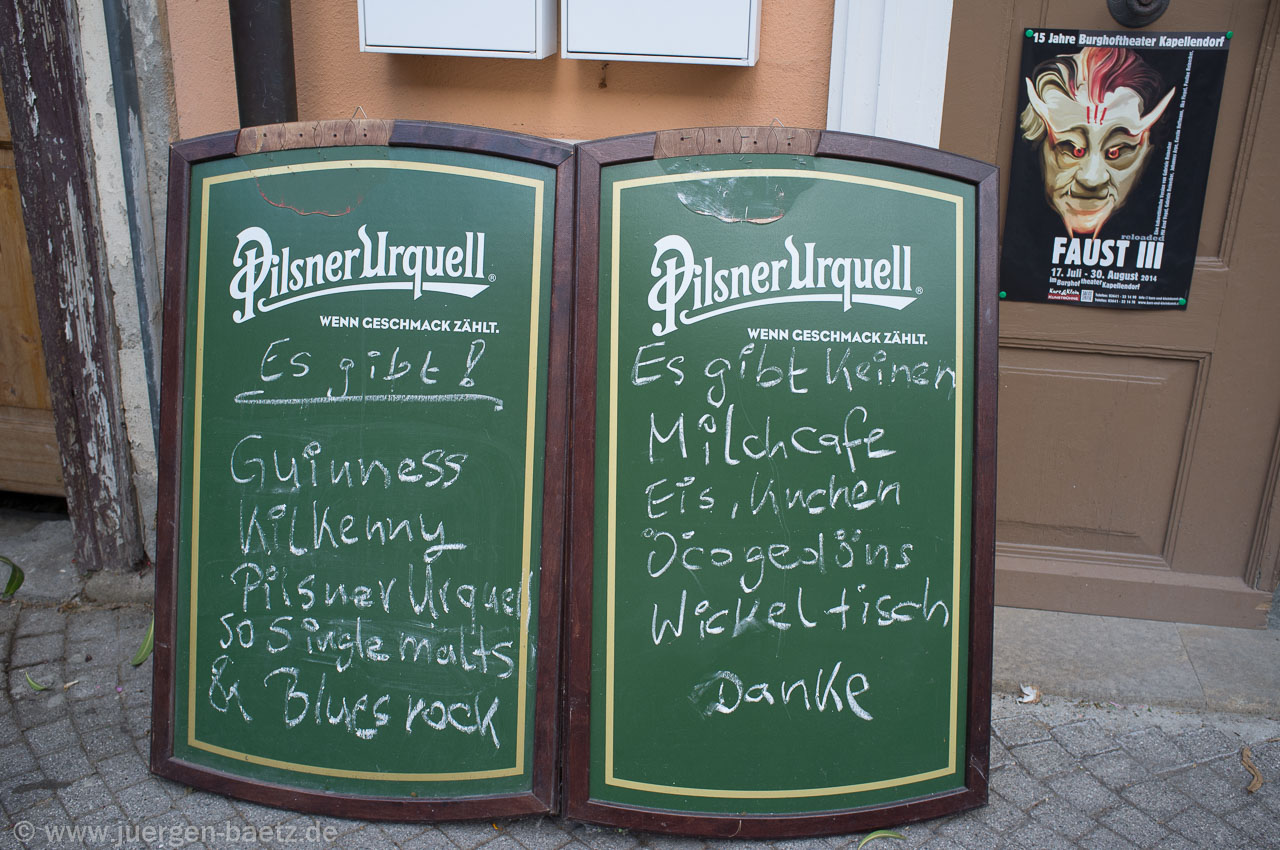 Pilsner Urquell®
WENN GESCHMACK ZÄHLT.
Es gibt!
Guinness
Kilkenny
Pilsner Urquell
50 Single malts
& Bluesrock
Pilsner Urquell®
WENN GESCHMACK ZÄHLT.
Es gibt Keinen
Milchcafe
Eis, Kuchen
Öcogedöns
Wickeltisch
Danke
15 Jahre Burghoftheater Kapellendorf
reloaded
FAUST III
17. Juli - 30. August 2014
im Burghoftheater Kapellendorf
Kurz&Klein
KUNSTBÜHNE
© www.juergen-baetz.de